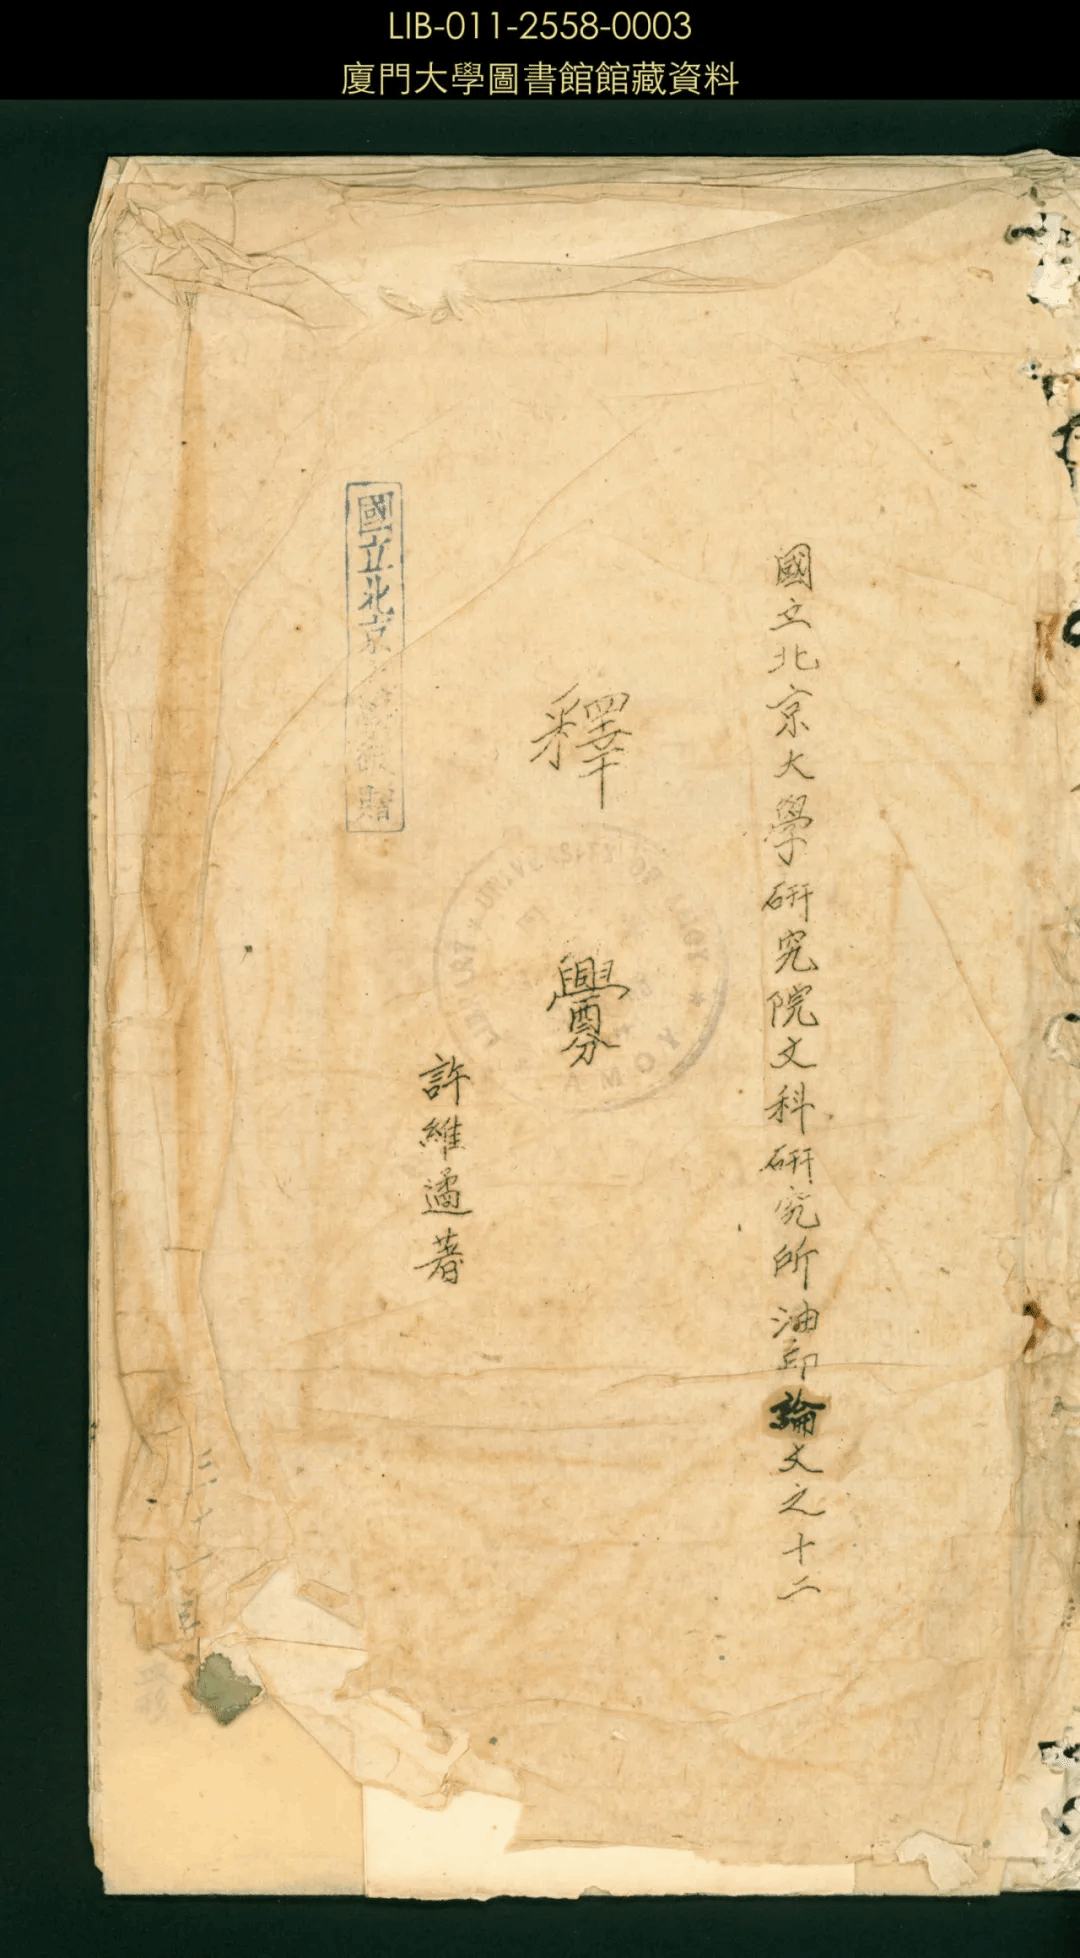 LIB-011-2558-0003
廈門大學圖書館館藏資料
國立北京大學研究院文科研究所油印論文之十二
釋釁
許維遹著
國立北京
贈
UNIVERSITY OF AMOY
AMOY